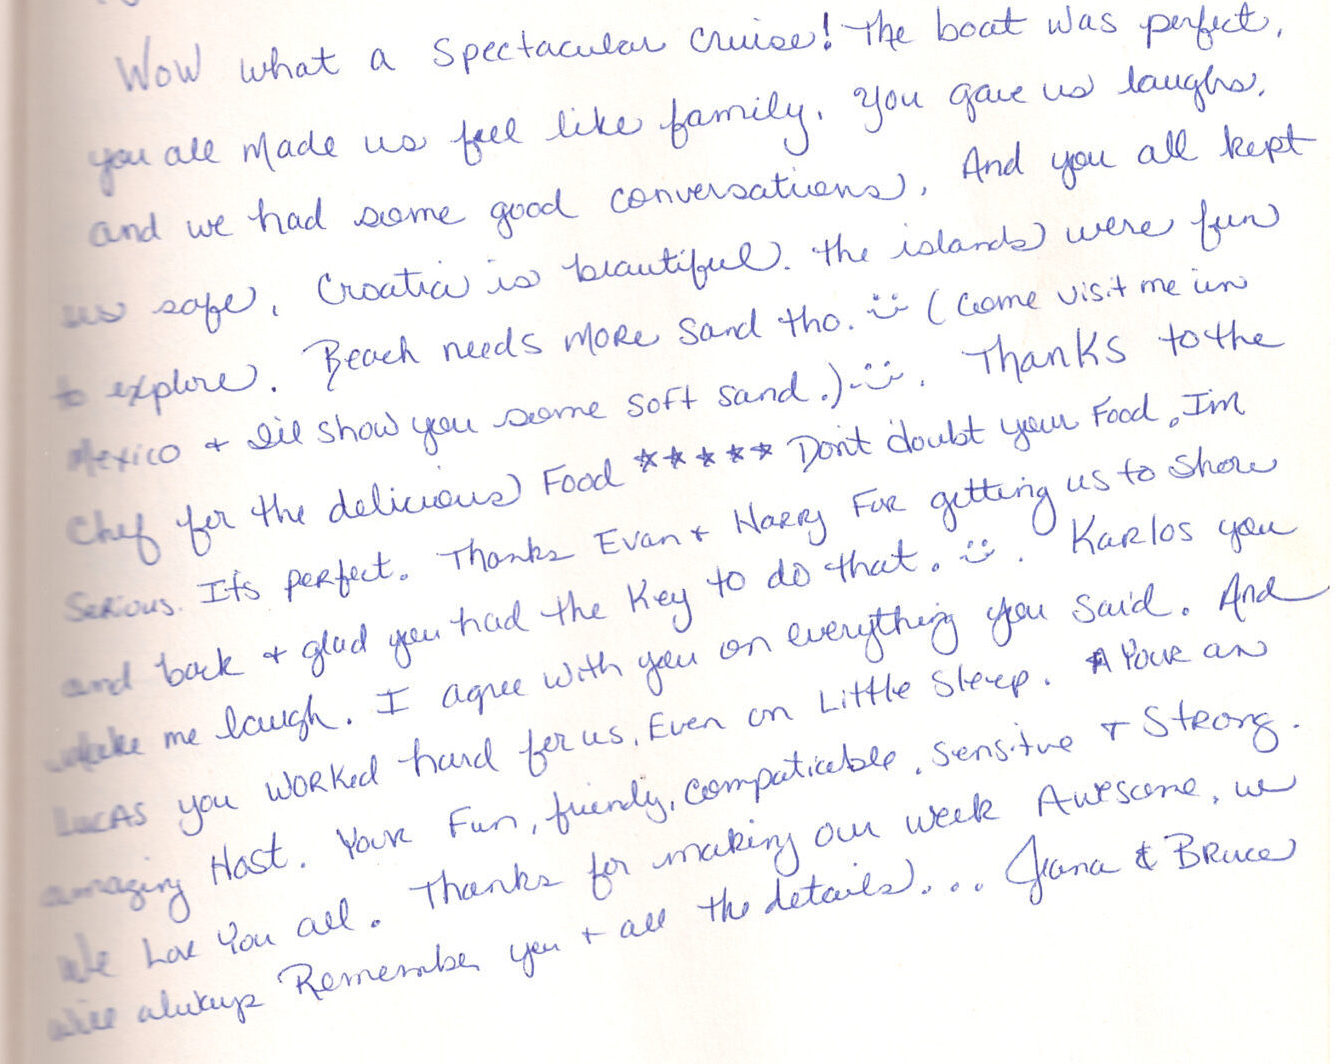 Wow what a spectacular cruise! The boat was perfect,
you all made us feel like family. You gave us laughs,
and we had some good conversations. And you all kept
us safe. Croatia is beautiful. the islands were fun
to explore. Beach needs MORE Sand tho. :) (Come visit me in
Mexico + I'll show you some soft sand.) :). Thanks to the
Chef for the delicious Food ☆☆☆☆☆ Don't doubt your Food, I'm
Serious. It's perfect. Thanks Evan + Harry For getting us to shore
and back + glad you had the Key to do that. :). Karlos you
make me laugh. I agree with you on everything you said. And
Lucas you worked hard for us, Even on Little Sleep. Your an
amazing Host. Your Fun, friendly, compaticable, sensitive + Strong.
We Love You all. Thanks for making our week Awesome, we
will always Remember you + all the details... Jana & Bruce